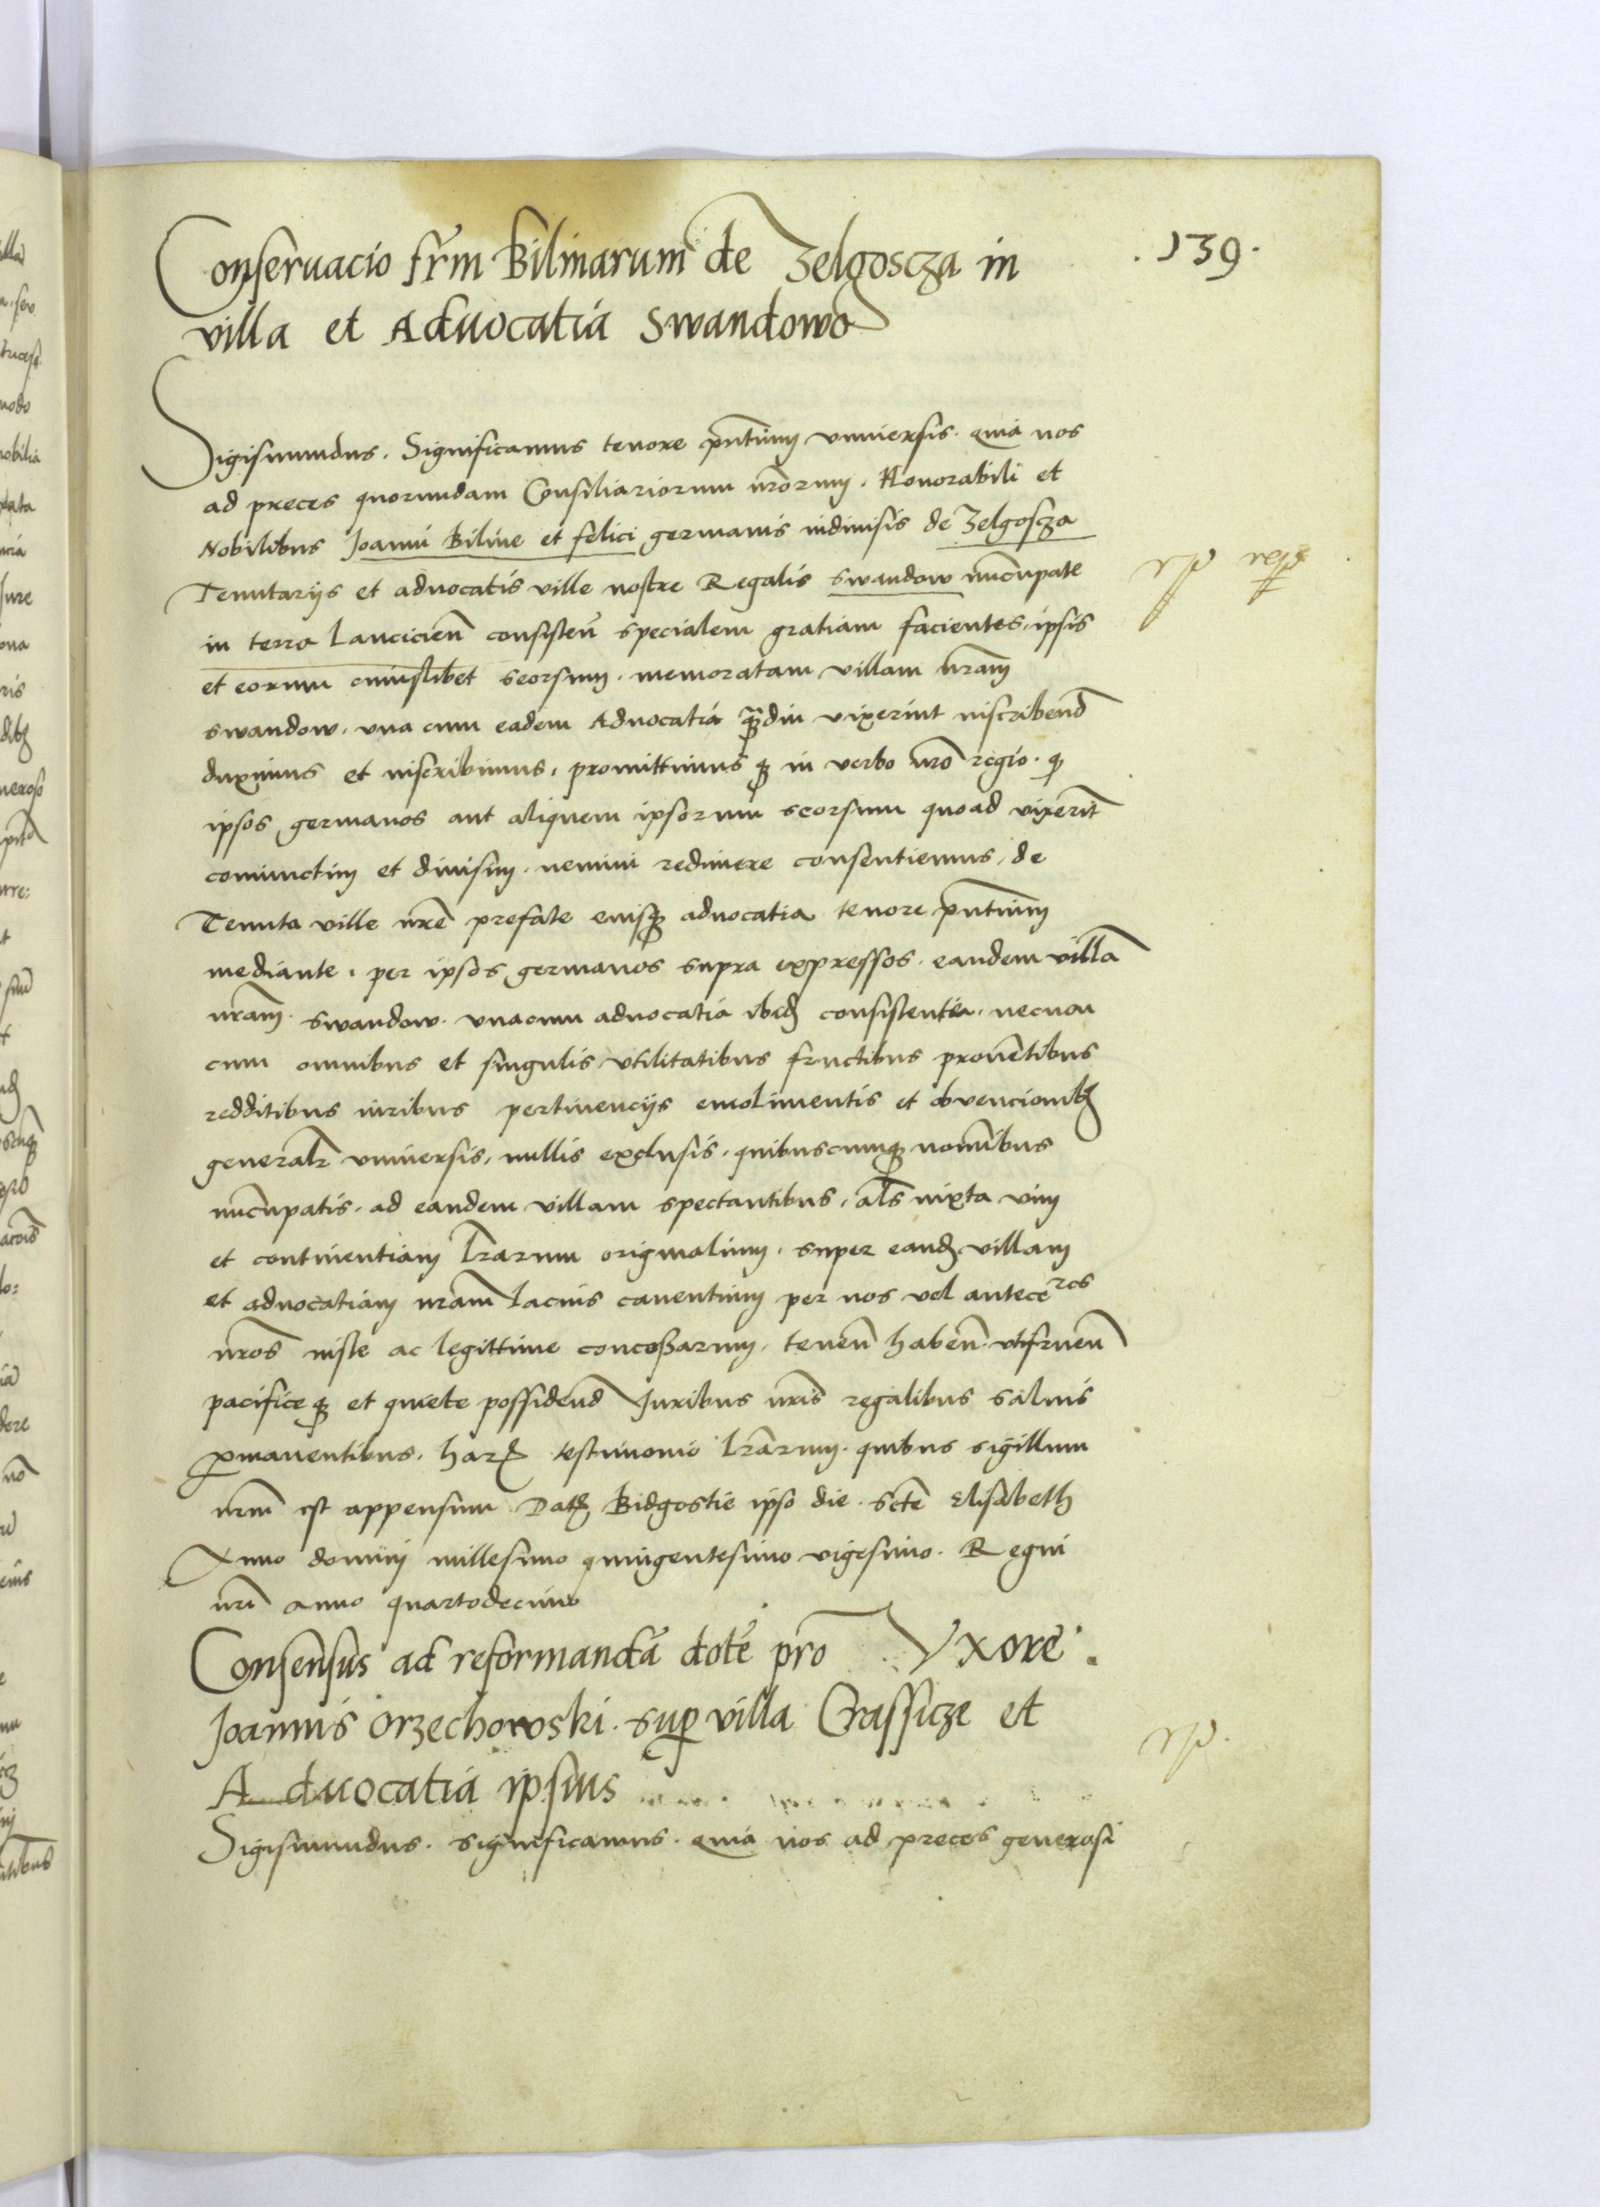 .139.
Conseruacio frm Bilinarum de Zelgoscza in
villa et Aduocatia Swandowo
Sigismundus. Significamus tenore pntium vniuersis. quia nos
ad preces quorundam Consiliariorum nrorum. Honorabili et
Nobilibus Joanni Biline et felici germanis indiuisis de Zelgoscza
Tenutarijs et aduocatis ville nostre Regalis swandow nuncupate
in terra Lancicien consisten specialem gratiam facientes. ipsis
et eorum cuiuslibet seorsum. memoratam villam nram
swandow. vna cum eadem Aduocatia qmdiu vixerint inscribend
duximus et inscribimus. promittimus q in verbo nro regio. q
ipsos germanos aut aliquem ipsorum seorsum quoad vixerint
coniunctim et diuisim. nemini redimere consentiemus. de
Tenuta ville nre prefate eiusq aduocatia tenore pntium
mediante. per ipsos germanos supra expressos. eandem villa
nram. swandow. vnacum aduocatia ibid consistentia. necnon
cum omnibus et singulis vtilitatibus fructibus prouentibus
redditibus iuribus pertinencijs emolimentis et obuencionib
generalr vniuersis. nullis exclusis. quibuscumq nominibus
nuncupatis. ad eandem villam spectantibus. als iuxta vim
et continentiam lrarum originalium. super eand villam
et aduocatiam nram lacius cauentium per nos vel anteceres
nros iuste ac legittime concessarum. tenen haben. vtifruen
pacifice q et quiete possidend Juribus nris regalibus saluis
pmanentibus. har testimonio lrarum. quibus sigillum
nrm est appensum Dat Bidgostie ipso die. scte Elisabeth
Anno domini millesimo quingentesimo vigesimo. Regni
nri anno quartodecimo
Consensus ad reformanda dote pro Vxore.
Joannis Orzechowski. sup villa Crassicze et
Aduocatia ipsius
Sigismundus. significamus. quia nos ad preces generosi